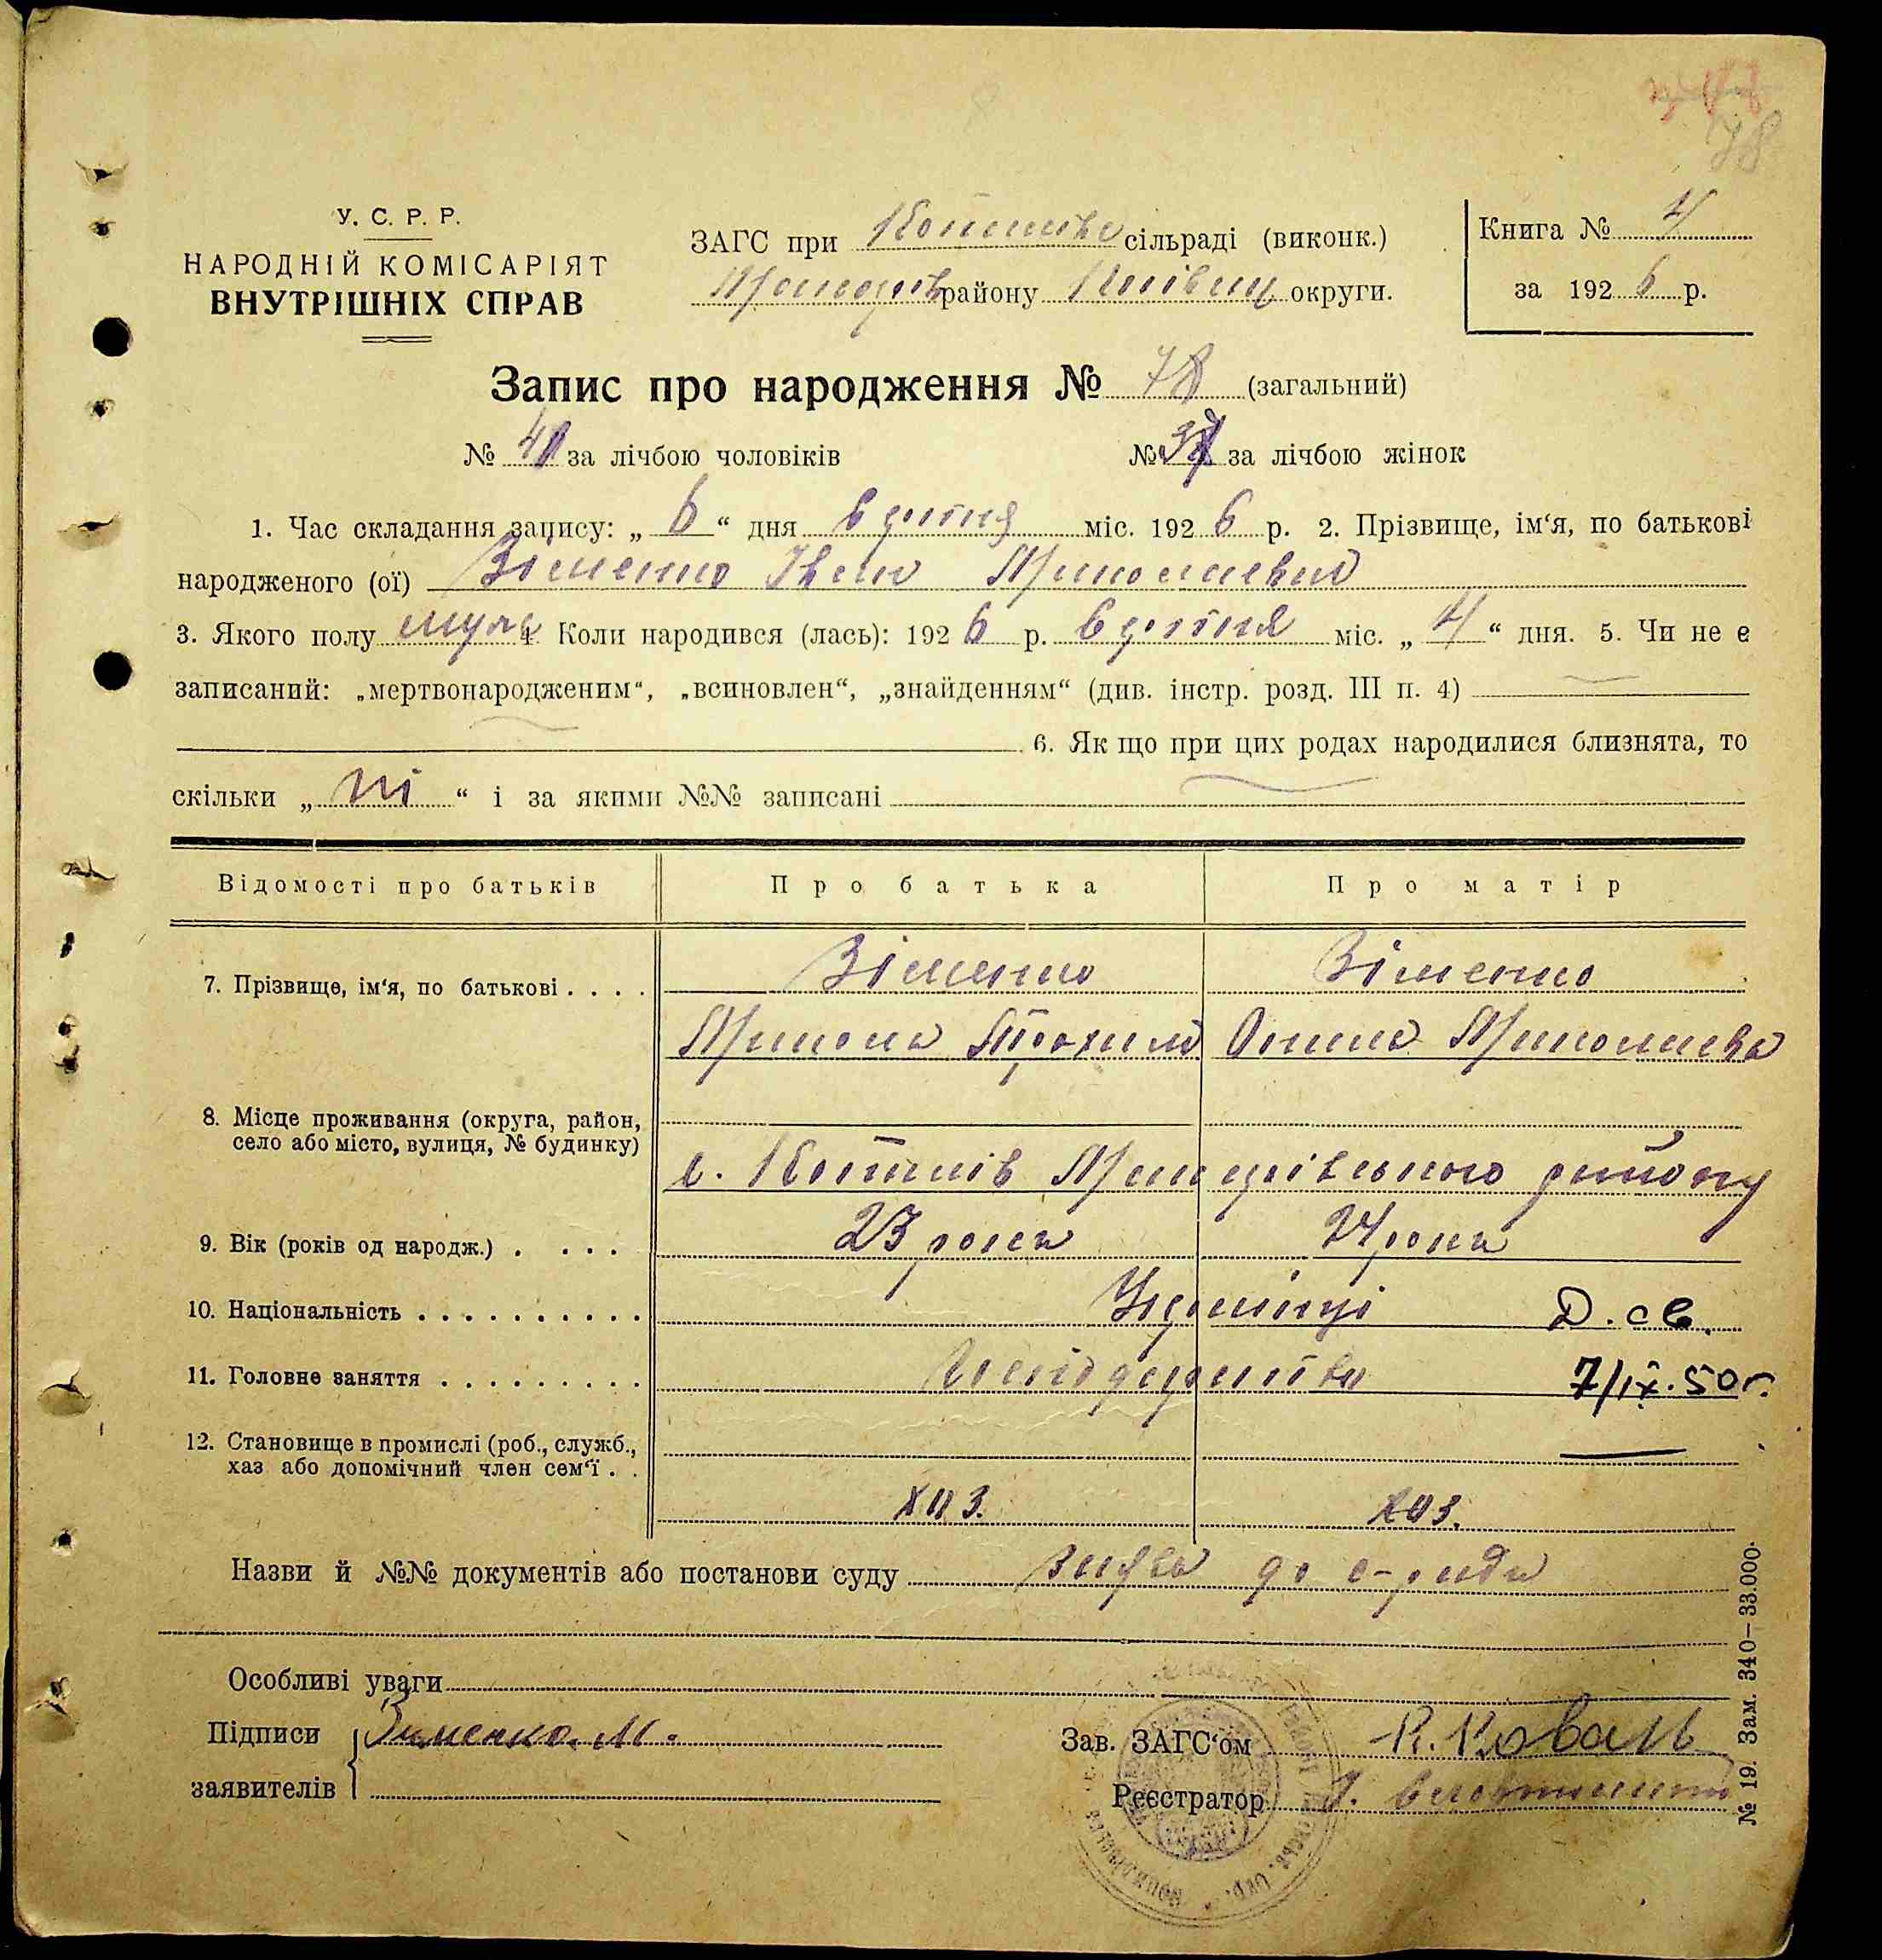 78
У. С. Р. Р.
НАРОДНІЙ КОМІСАРІЯТ
ВНУТРІШНІХ СПРАВ
ЗАГС при сільраді (виконк.)
району округи.
Книга № 4
за 1926 р.
Запис про народження № 78 (загальний)
№ 41 за лічбою чоловіків № 37 за лічбою жінок
1. Час складання запису: „ 6 “ дня серпня міс. 1926 р. 2. Прізвище, ім‘я, по батькові
народженого (ої) Зіменко Іван Миколаєвич
3. Якого полу муж. 4. Коли народився (лась): 1926 р. серпня міс. „ 4 “ дня. 5. Чи не є
записаний: „мертвонародженим“, „всиновлен“, „знайденням“ (див. інстр. розд. III п. 4)
6. Як що при цих родах народилися близнята, то
скільки „ ні “ і за якими №№ записані
Відомості про батьків Про батька Про матір
7. Прізвище, ім‘я, по батькові . . . . Зіменко Зіменко
Микола Трохим Миколаєва
8. Місце проживання (округа, район,
село або місто, вулиця, № будинку)
с. району
9. Вік (років од народж.) . . . . 23 роки 24 роки
10. Національність . . . . . . . . . . Українці Д. св.
11. Головне заняття . . . . . . . . . 7/IX. 50 г.
12. Становище в промислі (роб., служб.,
хаз або допомічний член сем‘ї . .
хаз. хаз.
Назви й №№ документів або постанови суду заява до с-ради
Особливі уваги
Підписи Зименко. М.
заявителів
Зав. ЗАГС‘ом К. Коваль
Реєстратор
№ 19. Зам. 340—33.000.